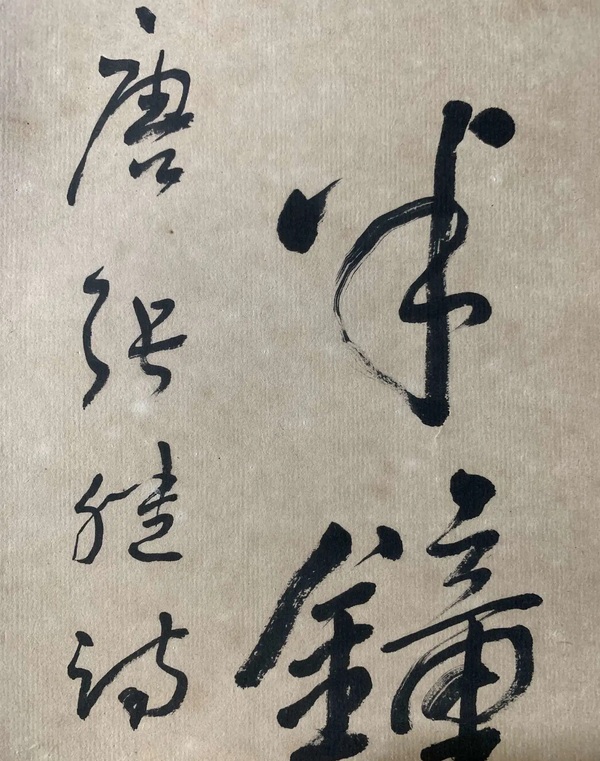 半鐘
唐張繼詩